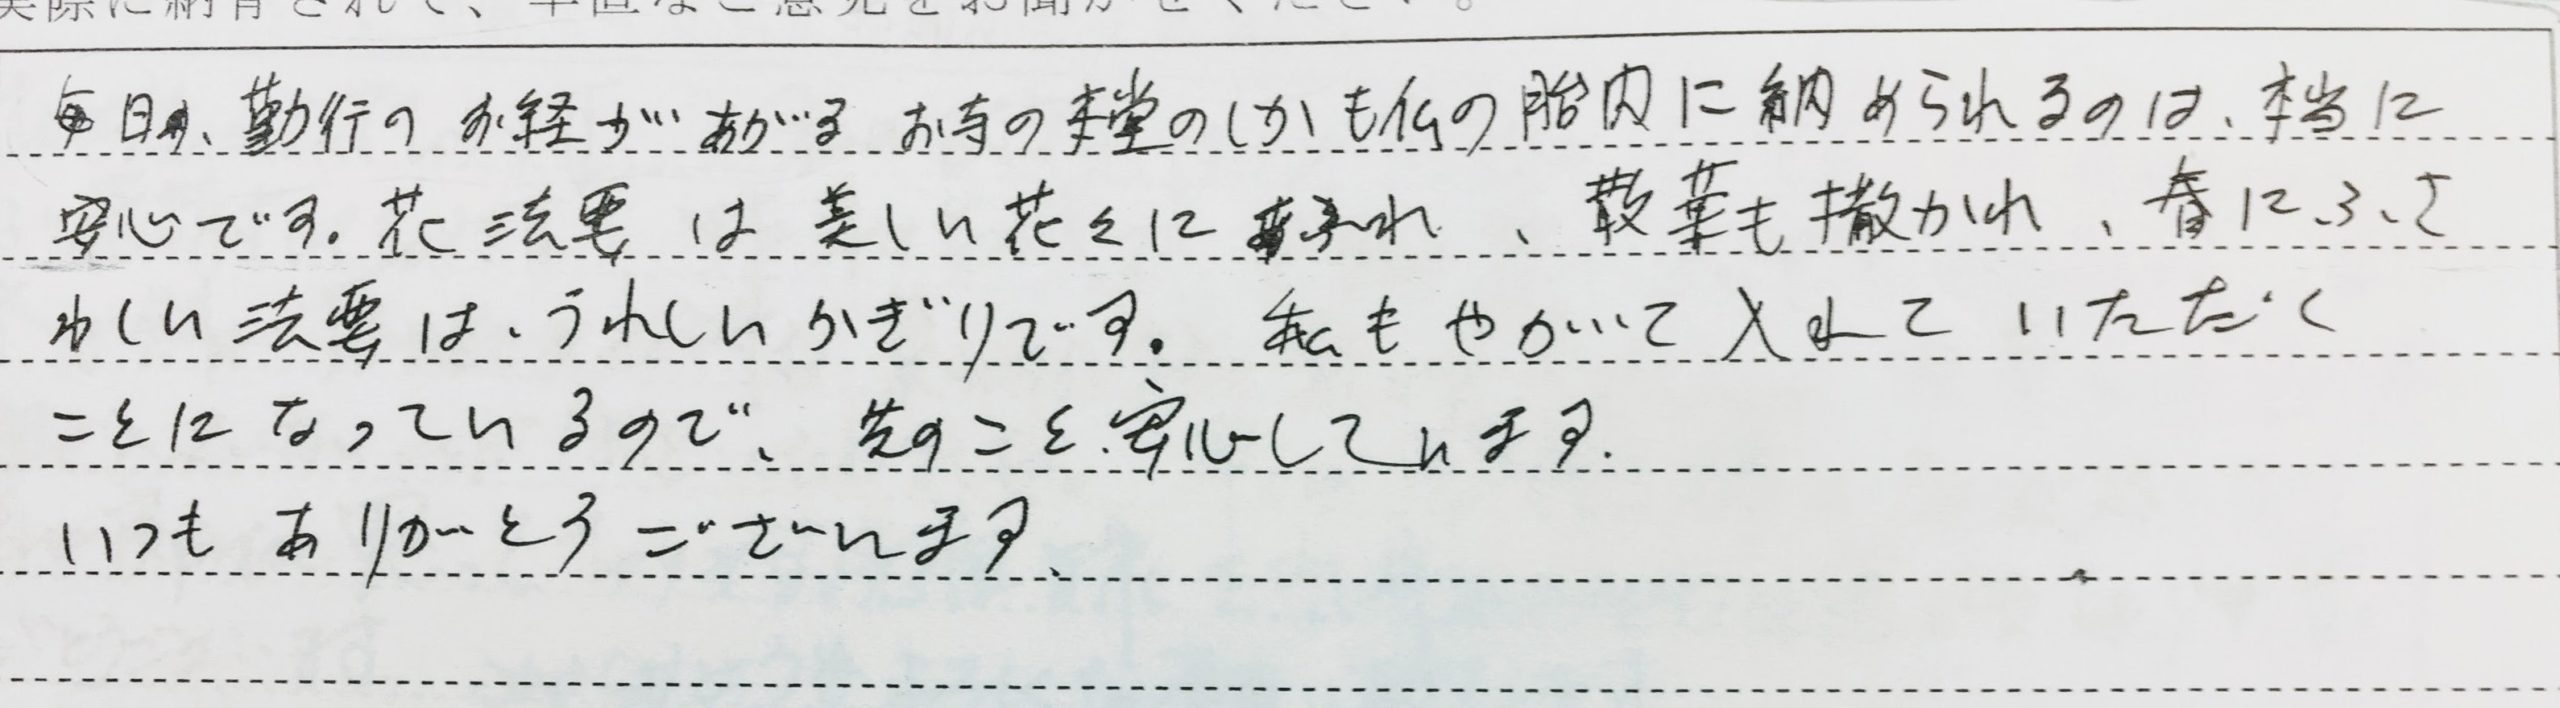 実際に納骨されて、率直なご意見をお聞かせください。
毎日の、勤行のお経があがるお寺の本堂のしかも仏の胎内に納められるのは、本当に
安心です。花法要は美しい花々に まかれ、散華も撒かれ、春にふさ
わしい法要は、うれしいかぎりです。私もやがて入れていただく
ことになっているので、先のこと安心しています。
いつもありがとうございます、